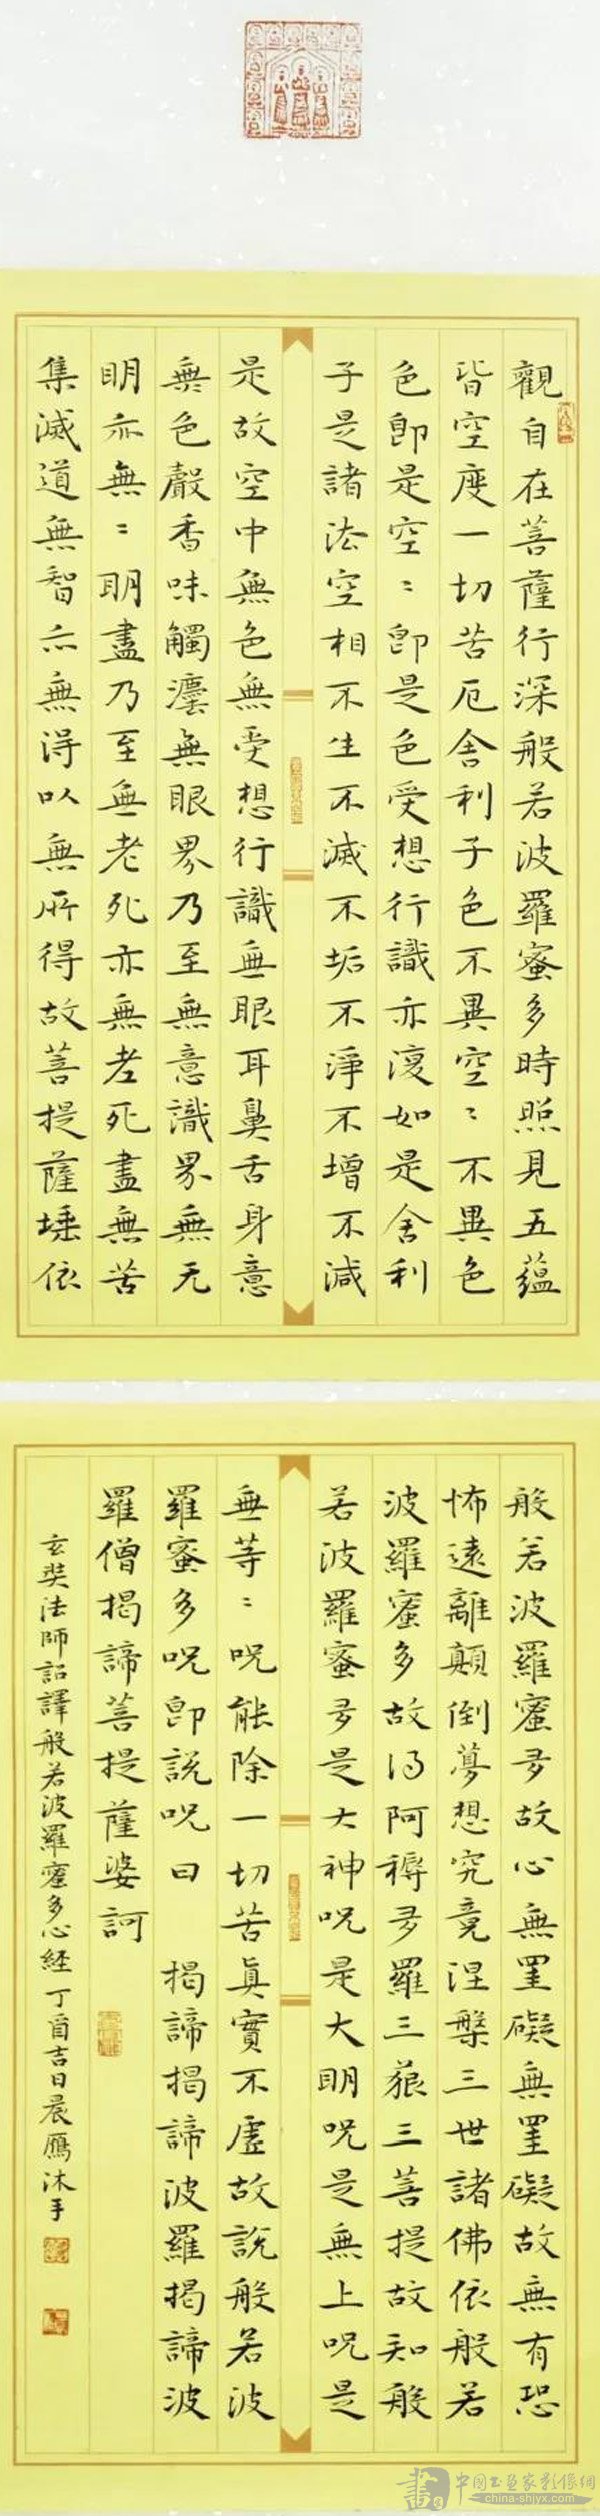 觀自在菩薩行深般若波羅蜜多時照見五蘊
皆空度一切苦厄舍利子色不異空〻不異色
色即是空〻即是色受想行識亦復如是舍利
子是諸法空相不生不滅不垢不淨不增不減
是故空中無色無受想行識無眼耳鼻舌身意
無色聲香味觸塵無眼界乃至無意識界無无
明亦無〻明盡乃至無老死亦無老死盡無苦
集滅道無智亦無得以無所得故菩提薩埵依
般若波羅蜜多故心無罣礙無罣礙故無有恐
怖遠離顛倒夢想究竟涅槃三世諸佛依般若
波羅蜜多故得阿耨多羅三藐三菩提故知般
若波羅蜜多是大神呪是大明呪是無上呪是
無等〻呪能除一切苦眞實不虛故說般若波
羅蜜多呪即說呪曰 揭諦揭諦波羅揭諦波
羅僧揭諦菩提薩婆訶
玄奘法師詔譯般若波羅蜜多心經 丁酉吉日晨鴈沐手
中國書画家影像網
china-shjyx.com